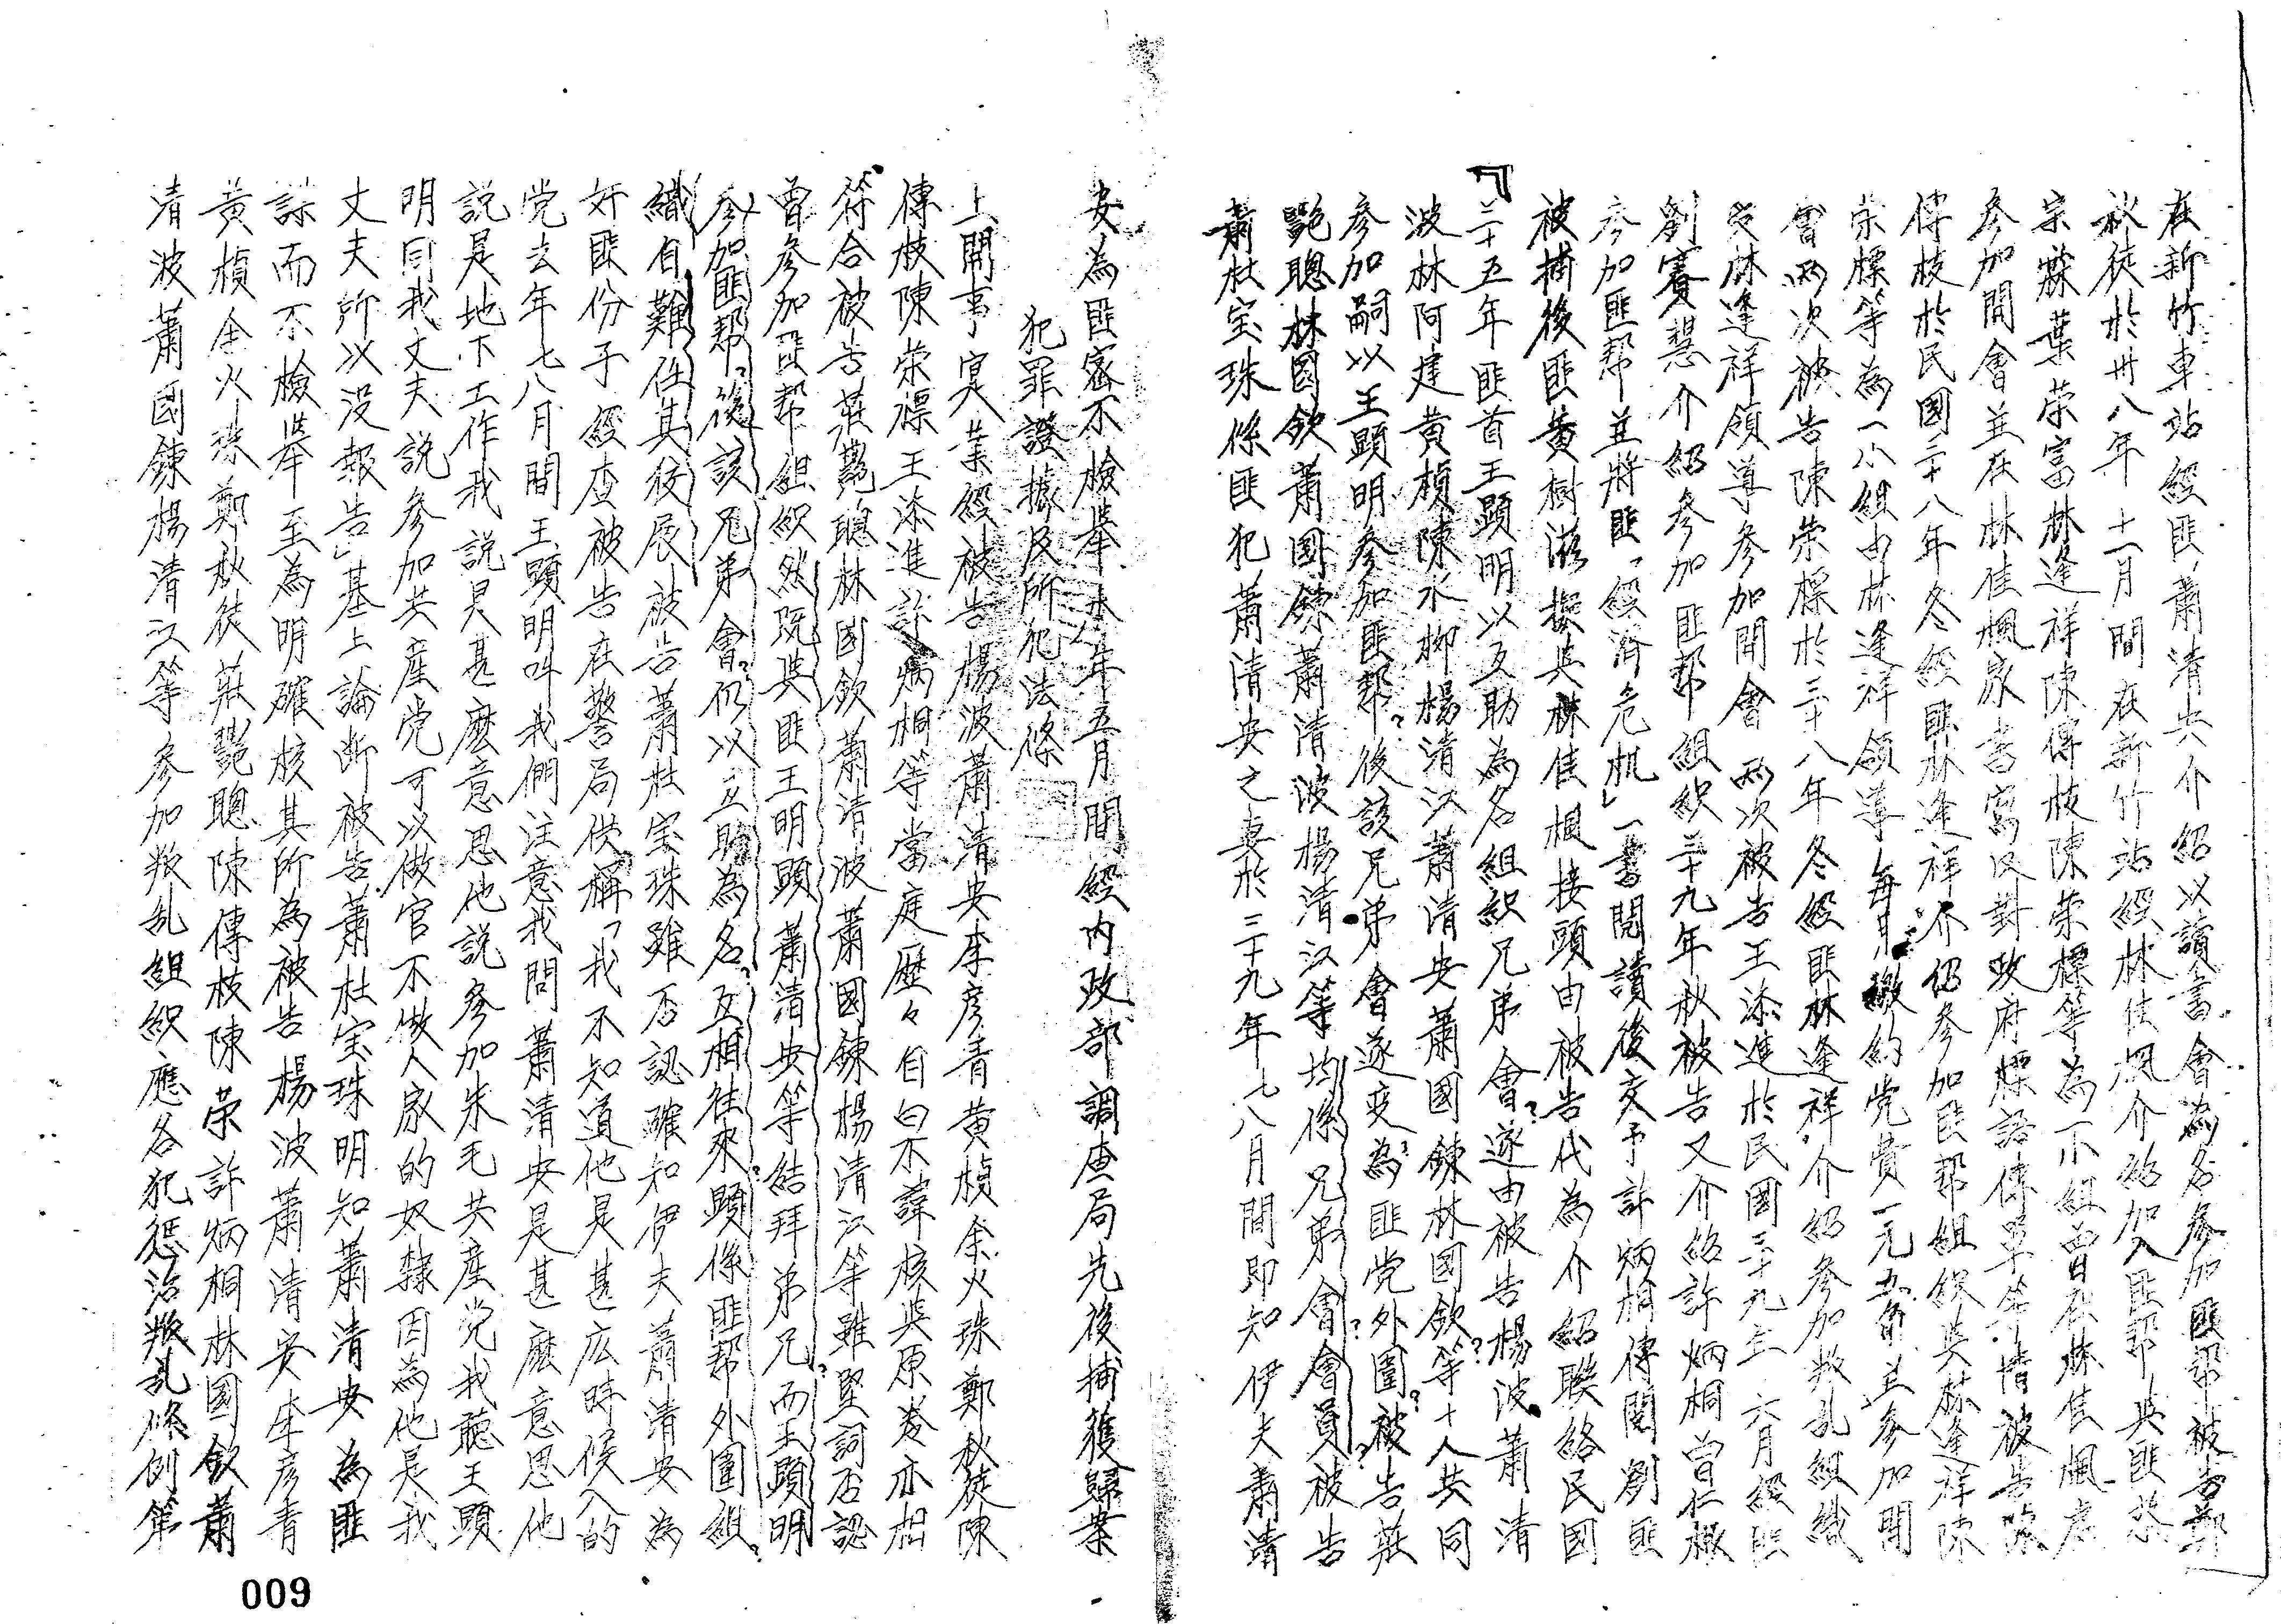 在新竹車站經匪蕭清央介紹以讀書會為名參加匪帮被告鄭
秋徒於卅八年十一月間在新竹站經林佳楓介紹加入匪帮與匪蔡
榮富林逢祥陳傳枝陳榮標等為一小組曾在林佳楓處
參加開會並在林佳楓家書寫反對政府標語傳單等情被告陳
傳枝於民國三十八年冬經匪林逢祥介紹參加匪帮組織與林逢祥陳
荣標等為一小組由林逢祥領導每月繳約党費一元五角並參加開
會兩次被告陳荣標於三十八年冬經匪林逢祥介紹參加叛乱組織
受林逢祥領導參加開會兩次被告王添進於民國三十九年六月經匪
劉賽慧介紹參加匪帮組織三十九年秋被告又介紹許炳桐曾仁極
參加匪帮並將匪「經濟危机」一書閱讀後交予許炳桐傳閱劉匪
被捕後匪黃樹滋接與林佳楓接頭由被告代為介紹聯絡民國
三十五年匪首王顕明以互助為名組織兄弟會遂由被告楊波蕭清
波林阿建黃楨陳水柳楊清汉蕭清央蕭國鍊林國欽等十人共同
參加嗣以王顕明參加匪帮後該兄弟會遂变為匪党外圍被告莊
艷聰林國欽蕭國鍊蕭清波楊清汉等均係兄弟會會員被告
蕭杜宝珠係匪犯蕭清央之妻於三十九年七八月間即知伊夫蕭清
央為匪密不檢舉本年五月間經内政部調查局先後捕獲歸案
犯罪證據及所犯法條
上開事寔業經被告楊波蕭清央李彥青黃楨余火珠鄭秋徒陳
傳枝陳荣標王添進許炳桐等當庭歷々自白不諱核與原卷亦相
符合被告莊艷聰林國欽蕭清波蕭國鍊楊清汉等雖堅詞否認
曾參加匪帮組織然既與匪王明顕蕭清央等結拜弟兄而王顕明
參加匪帮後該兄弟會仍以互助為名互相往來顕係匪帮外圍組
織自難任其狡展被告蕭杜宝珠雖否認確知伊夫蕭清央為
奸匪份子經查被告在警局供稱「我不知道他是甚広時候入的
党去年七八月間王顕明叫我們注意我問蕭清央是甚麽意思他
説是地下工作我説是甚麽意思他説參加朱毛共産党我聽王顕
明同我丈夫説參加共産党可以做官不做人家的奴隸因為他是我
丈夫所以没報告」基上論断被告蕭杜宝珠明知蕭清央為匪
諜而不檢舉至為明確核其所為被告楊波蕭清央李彥青
黃楨余火珠鄭秋徒莊艷聰陳傳枝陳荣許炳桐林國欽蕭
清波蕭國鍊楊清汉等參加叛乱組織應各犯惩治叛乱條例第
009